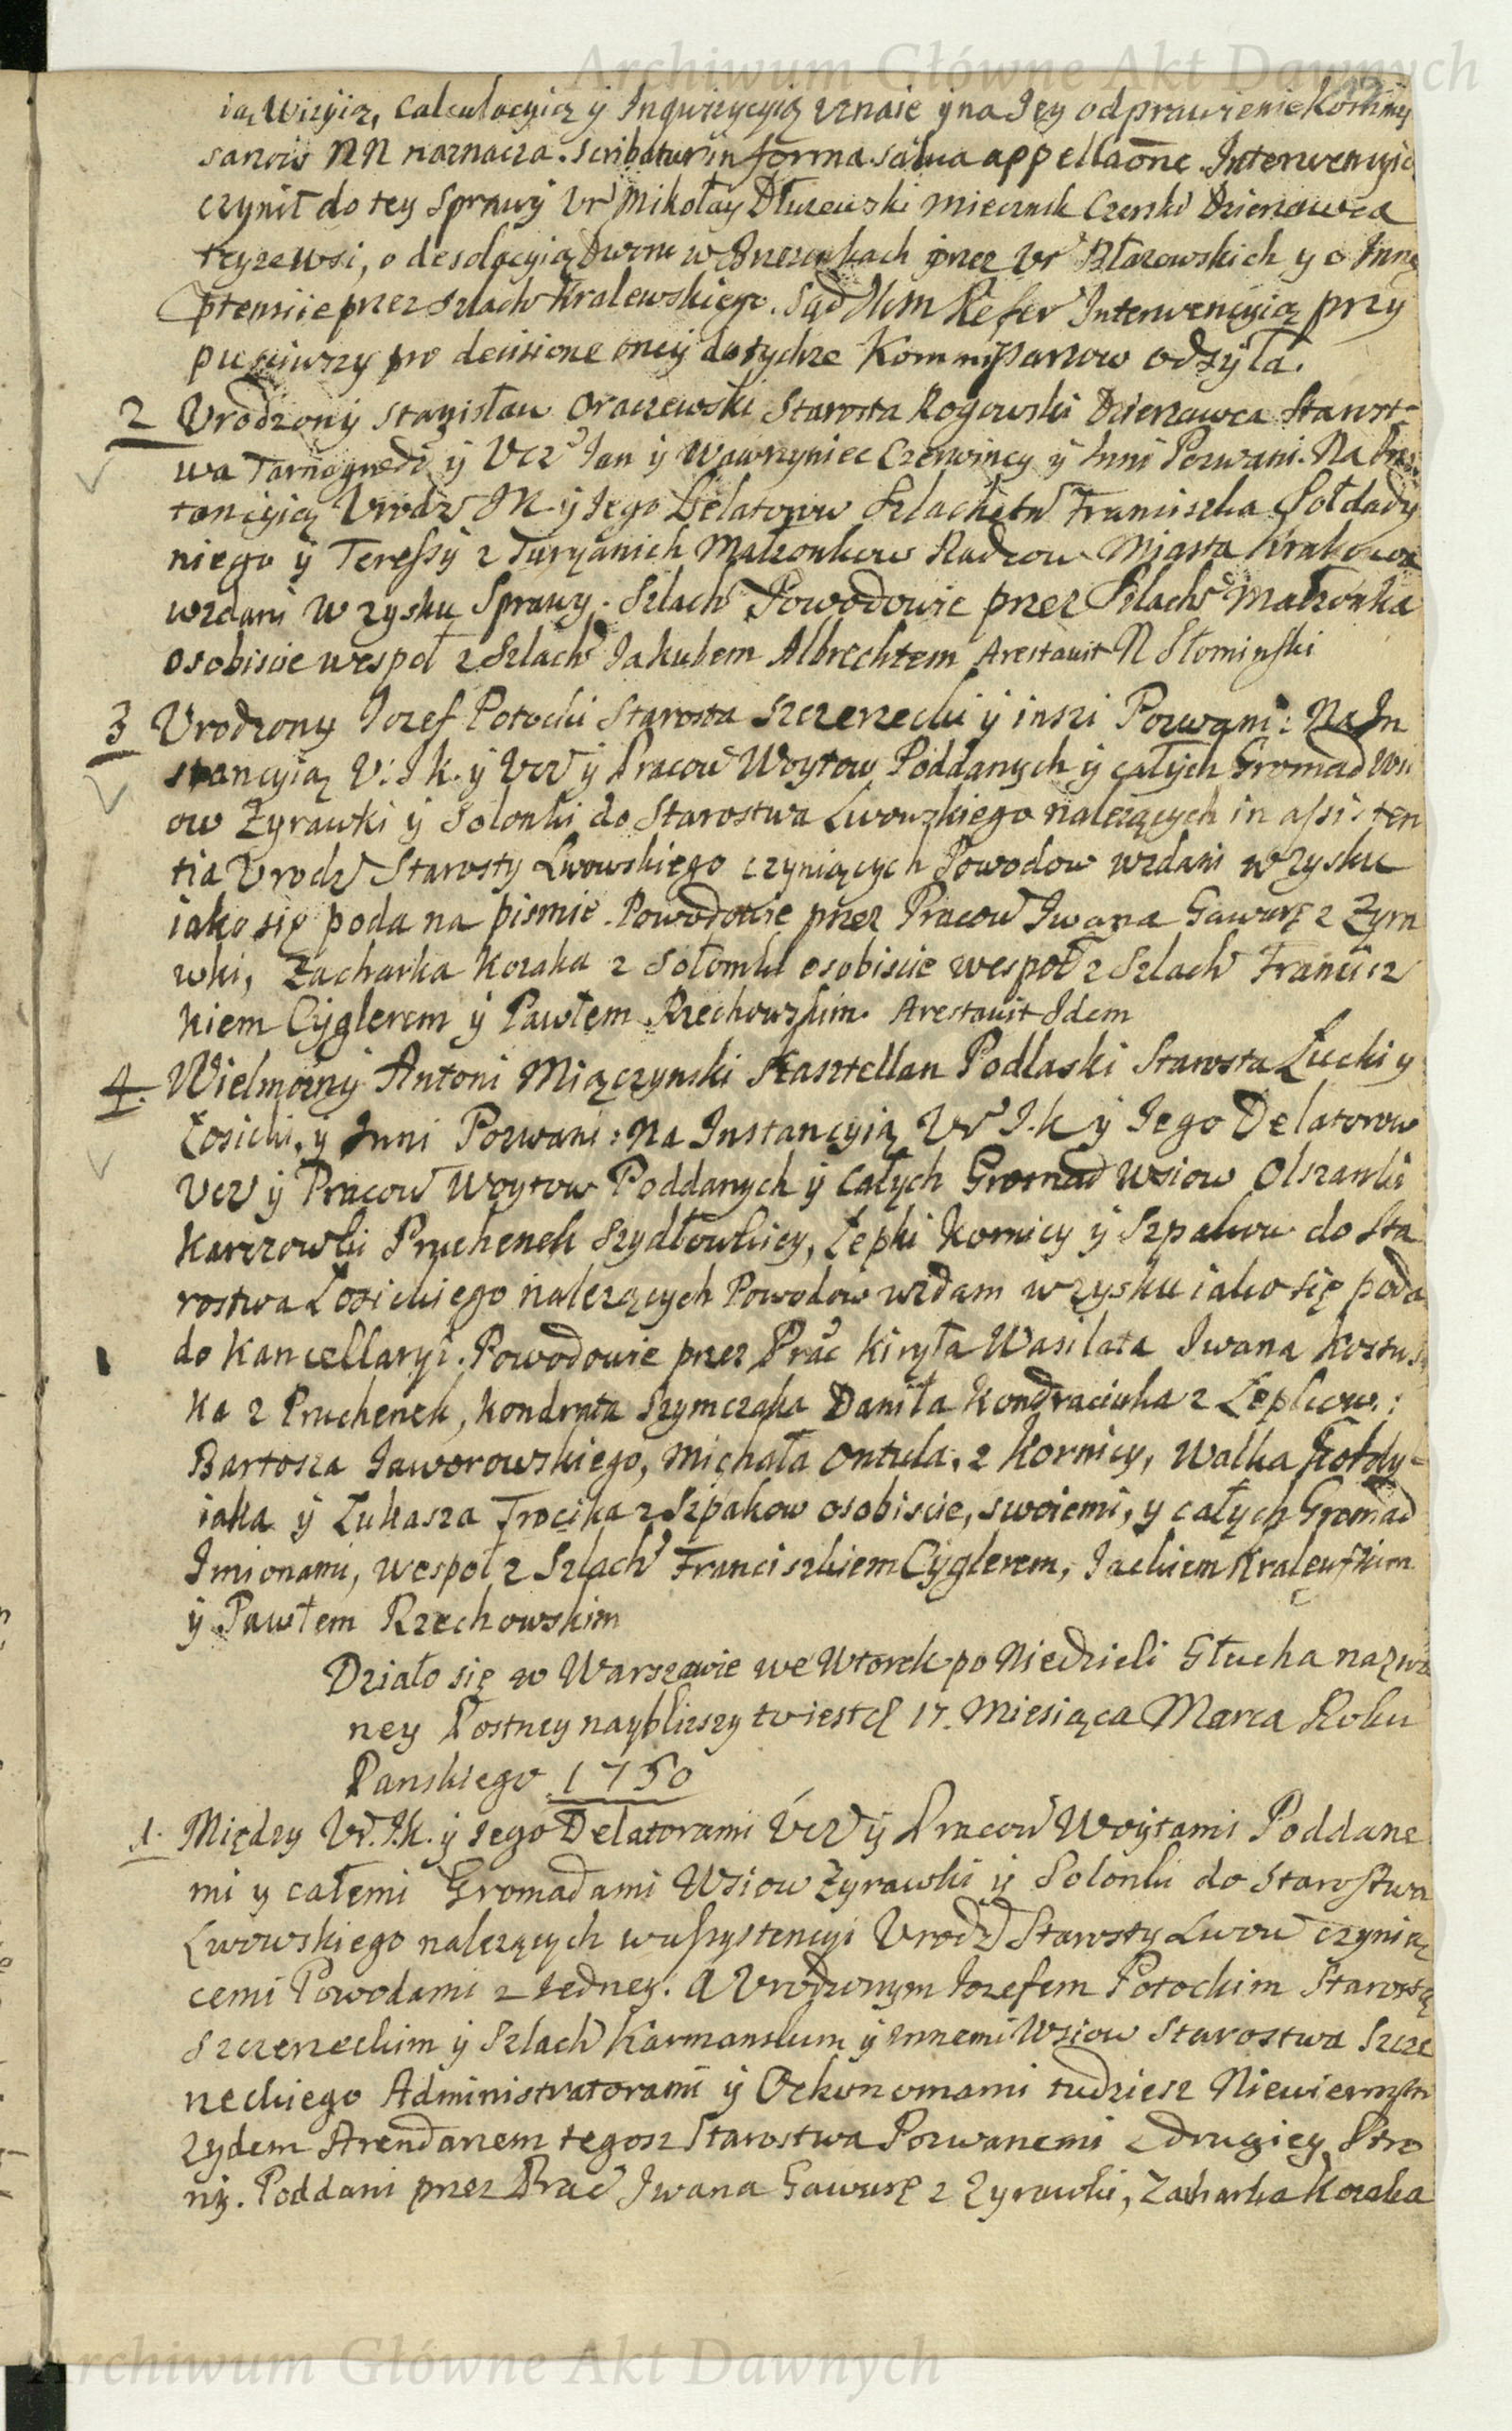 Archiwum Główne Akt Dawnych
ią Wizyią, Calculacyią y Inqwizycyią uznaie y na Jey odprawienie Kommis
sarzow NN naznacza. Scribatur in forma salva appellaōne Interwencyią
czynił do tey Sprawy Ur Mikołay Dłuzewski Miecznik Czerski Dzierzawca
teyze wsi, o desolacyią Dworu w przez Ur Błazowskich y o Inne
ptensiie przez Szlach Kralewskiego. Sąd Jkm Refer Interwencyią przy
pusciwszy pro decisione oney do tychze Kommissarzow odsyła.
2 Urodzony Stanisław Oraczewski Starosta Rogowski Dzierzawca Starost-
wa Tarnogrodz y Ucz Jan y Wawrzyniec Czerwincy y Inni Pozwani. Na Ins
tancyią Urodz JK y Jego Delatorow Szlachetn Franciszka Sołdady
niego y Teressy z Małzonkow Radzcow Miasta Krakowa
wzdani w zysku Sprawy. Szlach Powodowie przez Szlach Małzonka
osobiscie wespoł z Szlach Jakubem Albrechtem Arestavit N Słominski
3 Urodzony Jozef Potocki Starosta Szczerzecki y inszi Pozwani: Na In
stancyią U: J K. y Ucz y Pracow Woytow Poddanych y całych Gromad Wsi
ow Zyrawki y Solonki do Starostwa Lwowskiego nalezących in assisten
tia Urodz Starosty Lwowskiego czyniących Powodow wzdani w zysku
iako się poda na pismie. Powodowie przez Pracow Iwana Gawurę z Zyra
wki, Zacharka Kozaka z Sołonki osobiscie wespoł z Szlach Francisz
kiem Cyglerem y Pawłem Rzechowskim. Arestavit Idem
4. Wielmozny Antoni Miączynski Kasztellan Podlaski Starosta Łucki y
Łosicki, y Inni Pozwani: Na Instancyią Ur J. K y Jego Delatorow
Ucz y Pracow Woytow Poddanych y całych Gromad Wsiow Olszanki
Karczowki Pruchenek Szydłowicy, Łepki Kornicy y Szpakow do Sta
rostwa Łosickiego nalezących Powodow wzdani w zysku iako się poda
do Kancellaryi. Powodowie przez Prac Kiryła Wasilata Iwana
ka z Pruchenek, Kondrata Szymczaka Daniła Kondraciuka z Łepkow:
Bartosza Jaworowskiego, Michała Ontula, z Kornicy, Walka Hołdy-
iaka y Łukasza Trocika z Szpakow osobiscie, swoiemi, y całych Gromad
Imionami, wespoł z Szlach Franciszkiem Cyglerem, Jackiem Kralewskim
y Pawłem Rzechowskim
Działo się w Warszawie we Wtorek po Niedzieli Głucha nazwa
ney Postney nayblizszy to iest d. 17. Miesiąca Marca Roku
Panskiego 1750
1. Między Ur. J.K. y Jego Delatorami Ucz y Pracow Woytami Poddane
mi y całemi Gromadami Wsiow Zyrawki y Solonki do Starostwa
Lwowskiego nalezących w assystencyi Urodz Starosty Lwow czynią
cemi Powodami z Jedney. A Urodzonym Jozefem Potockim Starostą
Szczerzeckim y Szlach Karmanskim y Innemi Wsiow Starostwa Szcze
neckiego Administratorami y Oekonomami tudziesz Niewiernym
Zydem Arendarzem tegosz Starostwa Pozwanemi z drugiey Stro
ny. Poddani przez Prac Iwana Gawurę z Zyrawki, Zacharka Kozaka
Archiwum Główne Akt Dawnych